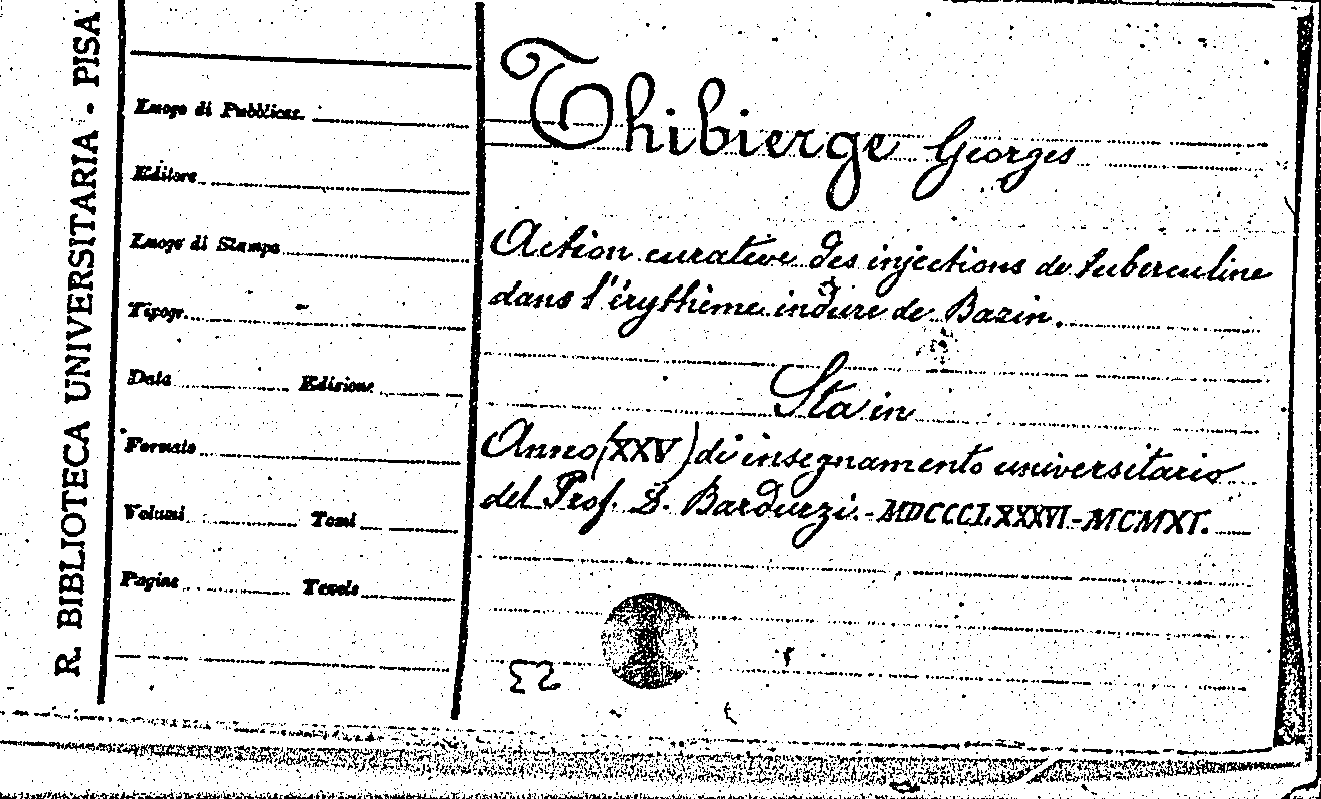 R. BIBLIOTECA UNIVERSITARIA - PISA
Luogo di Pubblicaz.
Editore
Luogo di Stampa
Tipogr.
Data Edizione
Formato
Volumi Tomi
Pagine Tavole
Thibierge Georges
Action curative des injections de tuberculine
dans l'érythème induré de Bazin.
Sta in
Anno (XXV) di insegnamento universitario
del Prof. D. Barduzzi. - MDCCCLXXXVI - MCMXI.